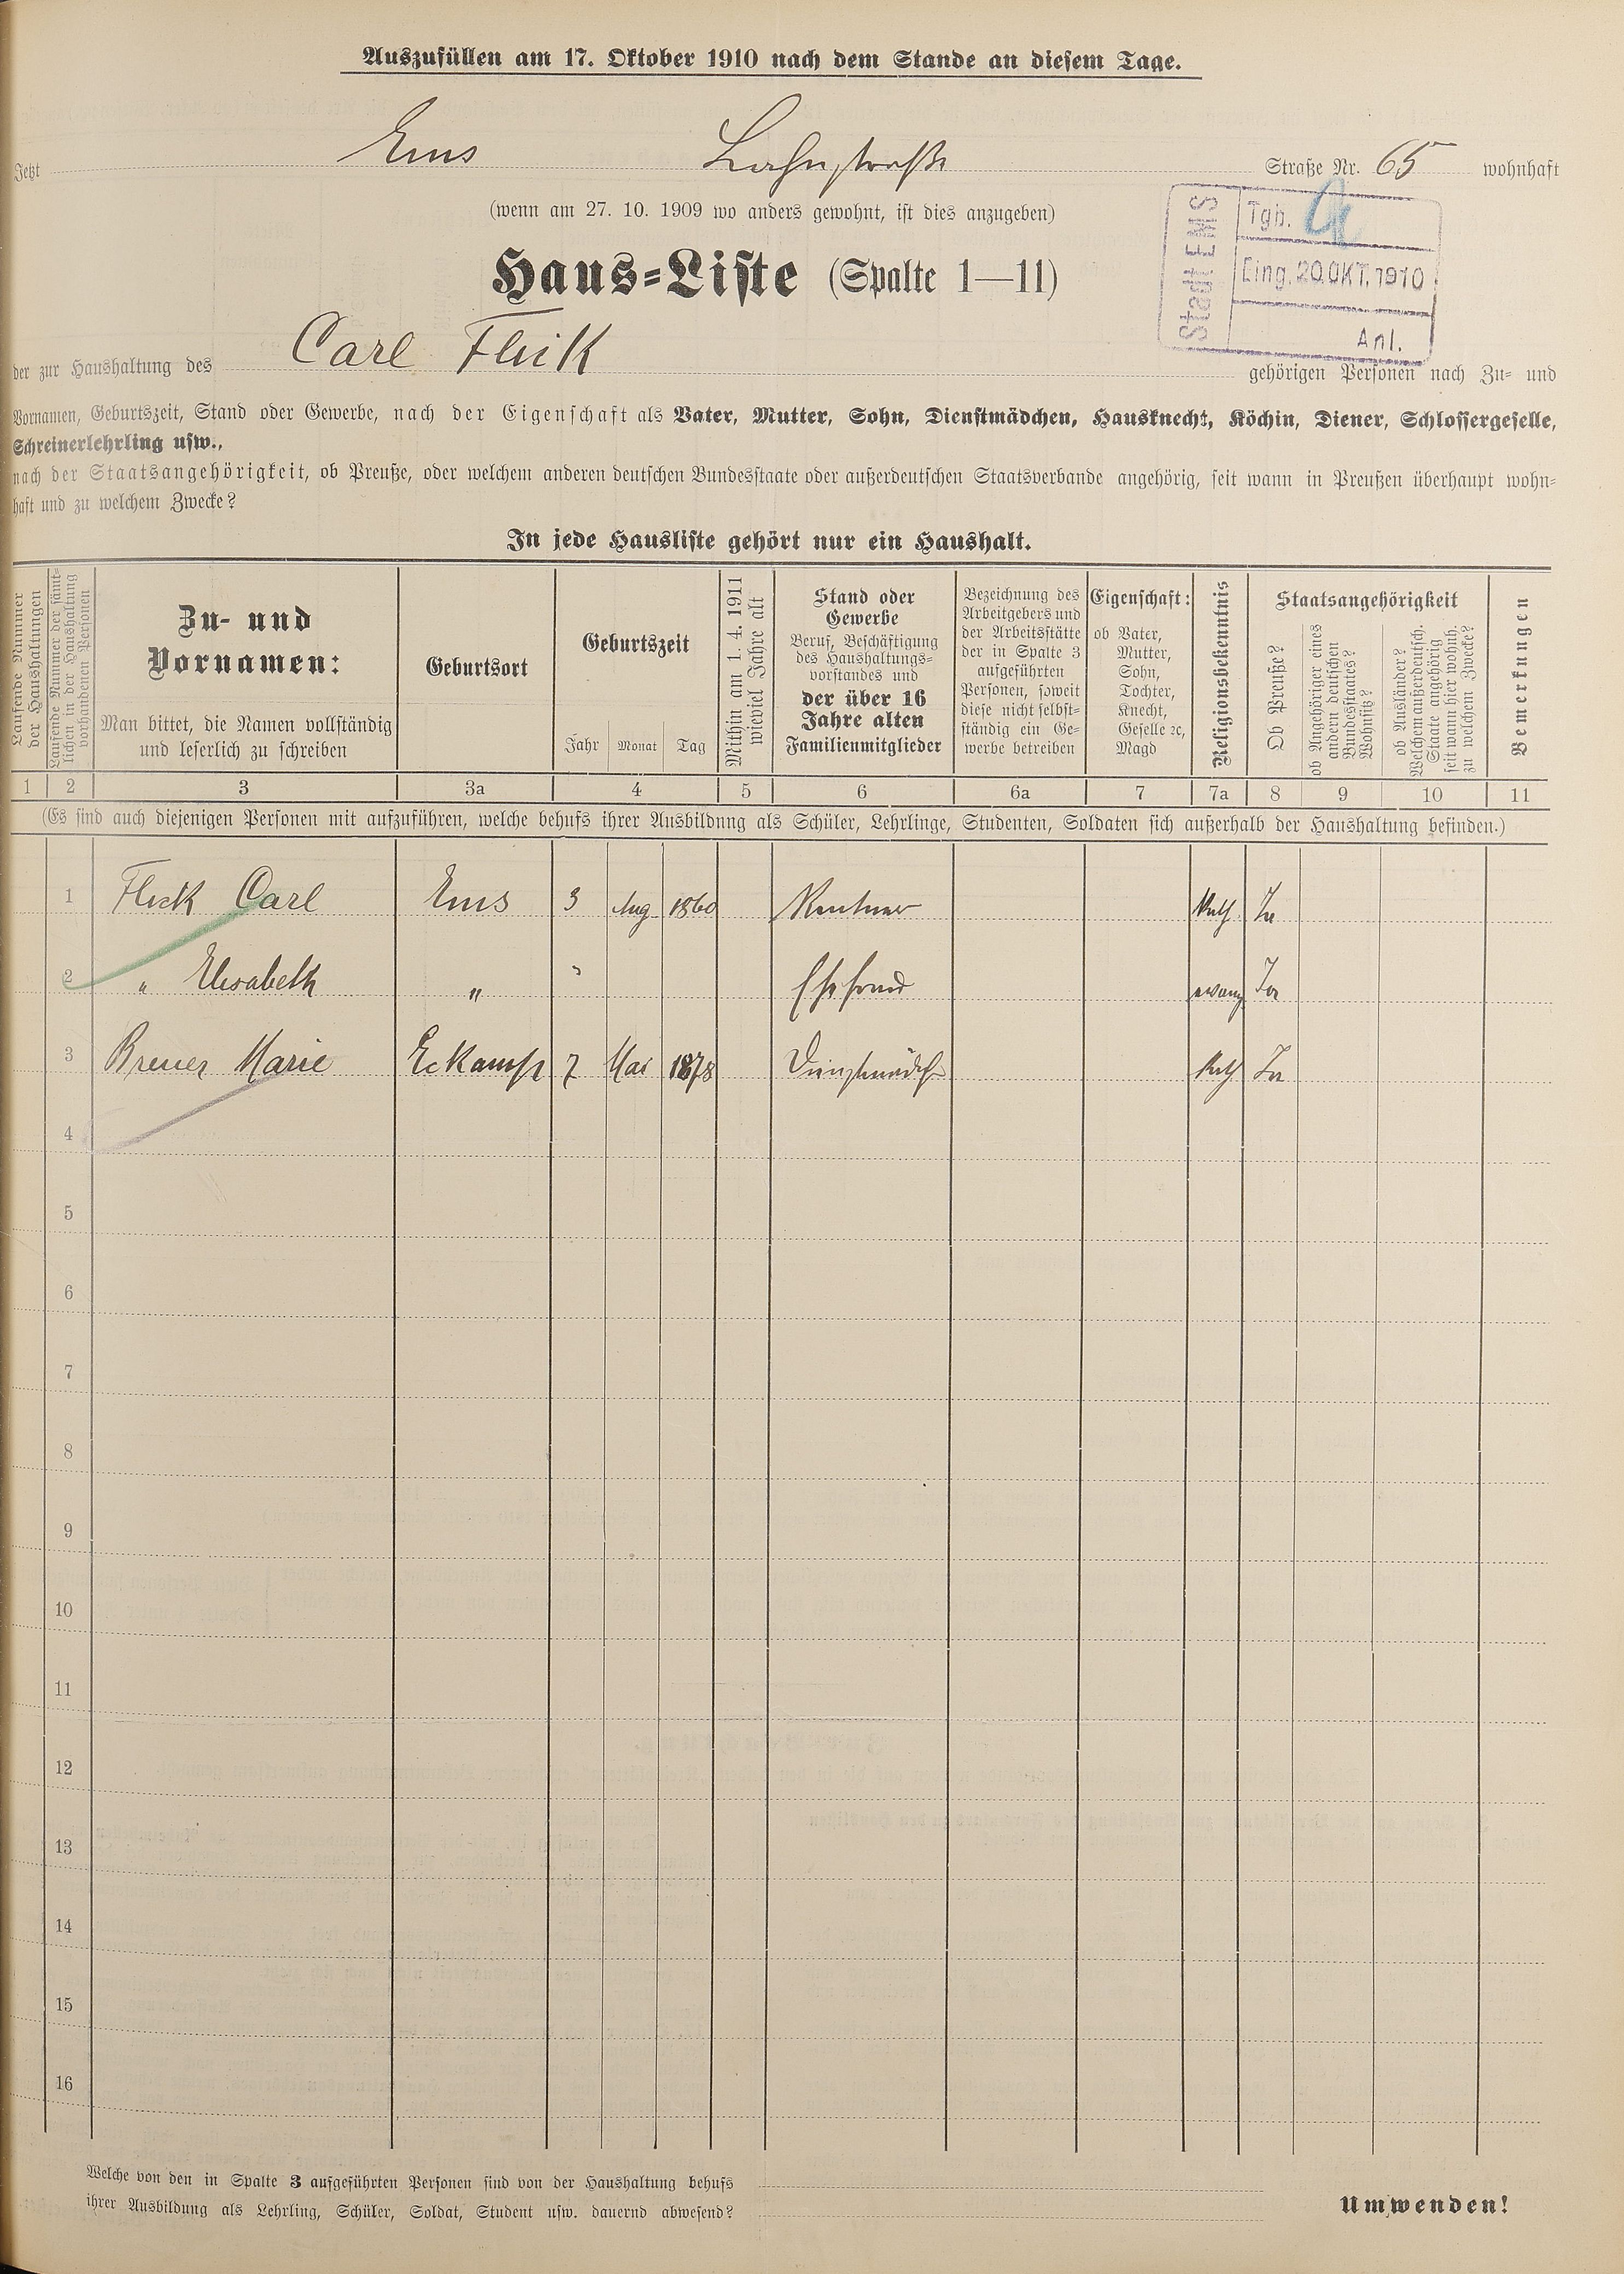 Auszufüllen am 17. Oktober 1910 nach dem Stande an diesem Tage.
Jetzt Ems Lahnstraße Straße Nr. 65 wohnhaft
(wenn am 27. 10. 1909 wo anders gewohnt, ist dies anzugeben)
Stadt EMS
Tgb.
Eing. 20. OKT. 1910
Anl.
Haus-Liste (Spalte 1—11)
der zur Haushaltung des Carl Flick gehörigen Personen nach Zu- und
Vornamen, Geburtszeit, Stand oder Gewerbe, nach der Eigenschaft als Vater, Mutter, Sohn, Dienstmädchen, Hausknecht, Köchin, Diener, Schlossergeselle,
Schreinerlehrling usw.,
nach der Staatsangehörigkeit, ob Preuße, oder welchem anderen deutschen Bundesstaate oder außerdeutschen Staatsverbande angehörig, seit wann in Preußen überhaupt wohn-
haft und zu welchem Zwecke?
In jede Hausliste gehört nur ein Haushalt.
Laufende Nummer
der Haushaltungen
Laufende Nummer der sämt-
lichen in der Haushaltung
vorhandenen Personen
Zu- und
Vornamen:
Man bittet, die Namen vollständig
und leserlich zu schreiben
Geburtsort
Geburtszeit
Jahr Monat Tag
Mithin am 1. 4. 1911
wieviel Jahre alt
Stand oder
Gewerbe
Beruf, Beschäftigung
des Haushaltungs-
vorstandes und
der über 16
Jahre alten
Familienmitglieder
Bezeichnung des
Arbeitgebers und
der Arbeitsstätte
der in Spalte 3
aufgeführten
Personen, soweit
diese nicht selbst-
ständig ein Ge-
werbe betreiben
Eigenschaft:
ob Vater,
Mutter,
Sohn,
Tochter,
Knecht,
Geselle ec,
Magd
Religionsbekenntnis
Staatsangehörigkeit
Ob Preuße?
ob Angehöriger eines
andern deutschen
Bundesstaates?
Wohnsitz?
ob Ausländer?
Welchem außerdeutsch.
Staate angehörig
seit wann hier wohnh.
zu welchem Zwecke?
Bemerkungen
1 2 3 3a 4 5 6 6a 7 7a 8 9 10 11
(Es sind auch diejenigen Personen mit aufzuführen, welche behufs ihrer Ausbildung als Schüler, Lehrlinge, Studenten, Soldaten sich außerhalb der Haushaltung befinden.)
1 Flick Carl Ems 3 Aug 1860 Rentner Kath Ja
2 " Elisabeth " " Ehefrau evang Ja
3 Breuer Marie 7 Mai 1878 Dienstmädch Kath Ja
4
5
6
7
8
9
10
11
12
13
14
15
16
Welche von den in Spalte 3 aufgeführten Personen sind von der Haushaltung behufs
ihrer Ausbildung als Lehrling, Schüler, Soldat, Student usw. dauernd abwesend?
Umwenden!